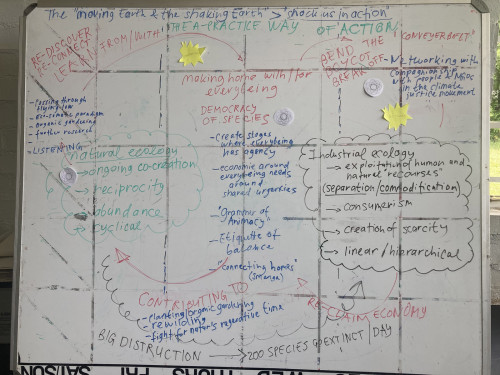 The "making Earth & the shaking Earth" > "shock us in action"
THE A-PRACTICE WAY OF ACTION
RE-DISCOVER
RE-CONNECT
LEARN FROM/WITH
BEND THE
BREAK OFF
"CONVEYERBELT"
making home with/for
everybeing
Networking with
companionship
with people at NGOs
in the climate
justice movement
- Passing through
- paradigm
- organic gardening
- further research
- LISTENING
DEMOCRACY
OF SPECIES
- Create stages
where everybeing
has agency
- economie around
everybeing needs
around
shared urgencies
- "Grammar of
Animacy"
- Etiquette of
balance
- "connecting homes"
natural ecology
→ ongoing co-creation
→ reciprocity
→ abundance
→ cyclical
Industrial ecology
→ exploitation of human and
natural "recourses"
(separation/commodification)
→ consumerism
→ creation of scarcity
→ linear/hierarchical
CONTRIBUTING TO
- planting/organic gardening
- rewilding
- fight for nature's regenerative time
RE-CLAIM ECONOMY
BIG DISTRUCTION → 200 SPECIES GO EXTINCT / DAY
WED THURS FRI SAT/SON